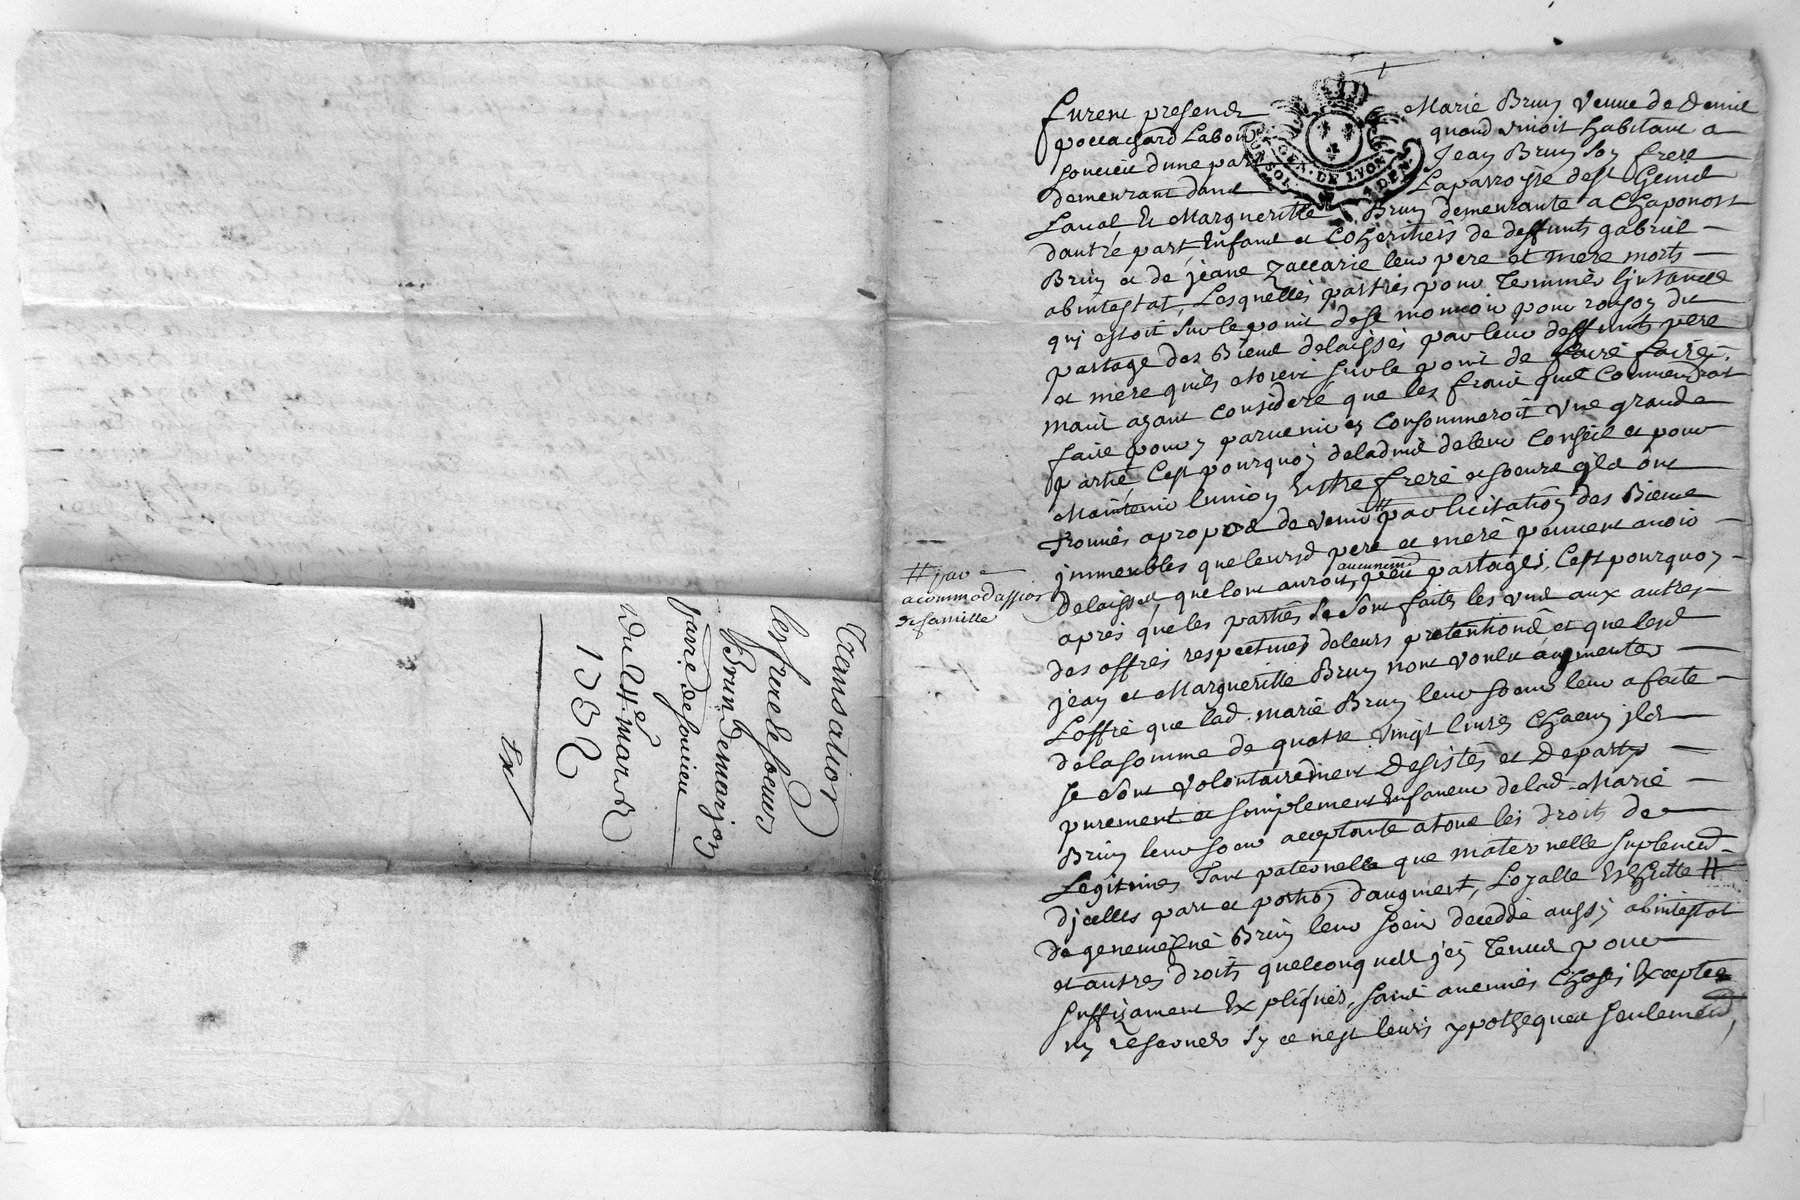 Transaction
les frere et soeurs
Brun de marjon
parre de soucieu
du 24e mars
1732
furent presends Marie Brun veuve de denis
poccachard Labour quand vivoit habitant a
soucieu dune part Jean Brun son frere
demeurant dans Laparroisse de st Genid
Laual Et Margueritte Brun demeurante a Chaponost
dautre part, Enfand et coheritiers de deffunts gabriel
Brun et de jeane Zaccarie leur pere et mere morts
abintestat, Lesquelles parties pour Terminer Linstance
qui estoit sur le point de se mouuoir pour raison du
partage des Biend delaissés par leur deffunts pere
et mere quils etoient sur le point de faire faire,
mais ayant consideré que les fraid quil conuiendroit
faire pour y paruenir en consommeroit vne grande
partie, Cest pourquoy de ladvid de leur conseil et pour
Maintenir lunion Entre frere et soeurs ils ont
trouués a propos de venir # par licitation des Biend
jmmeubles que leursd pere et mere peuuent auoir
delaissés, que lont auroit aucunem partagés, Cest pourquoy
apres que les parties se sont faites les vnes aux autres
des offres respectives de leurs pretentiond et que lesd
jean et Margueritte Brun nont voulu augmenter
Loffre que lad. marie Brun leur soeur leur a faite
de la somme de quatre vingt livres chacun ils
se sont volontairement Desistés et Departy
purement et simplement En faueur de lad. Marie
Brun leur soeur acceptante a tous les droits de
Legitimes Tant paternelle que maternelle suplement
djcelles part et portion daugment, Loyalle Escheitte #
de geneuiefue Brun leur soeur decedde aussy abintestat
et autres droits quelconques jcy Tenus pour
suffizament Expliqués, sans aucunes choses Excepter
ny reseruer sy ce nest leurs ypotheques seulement,
# par
acommodassion
de famille